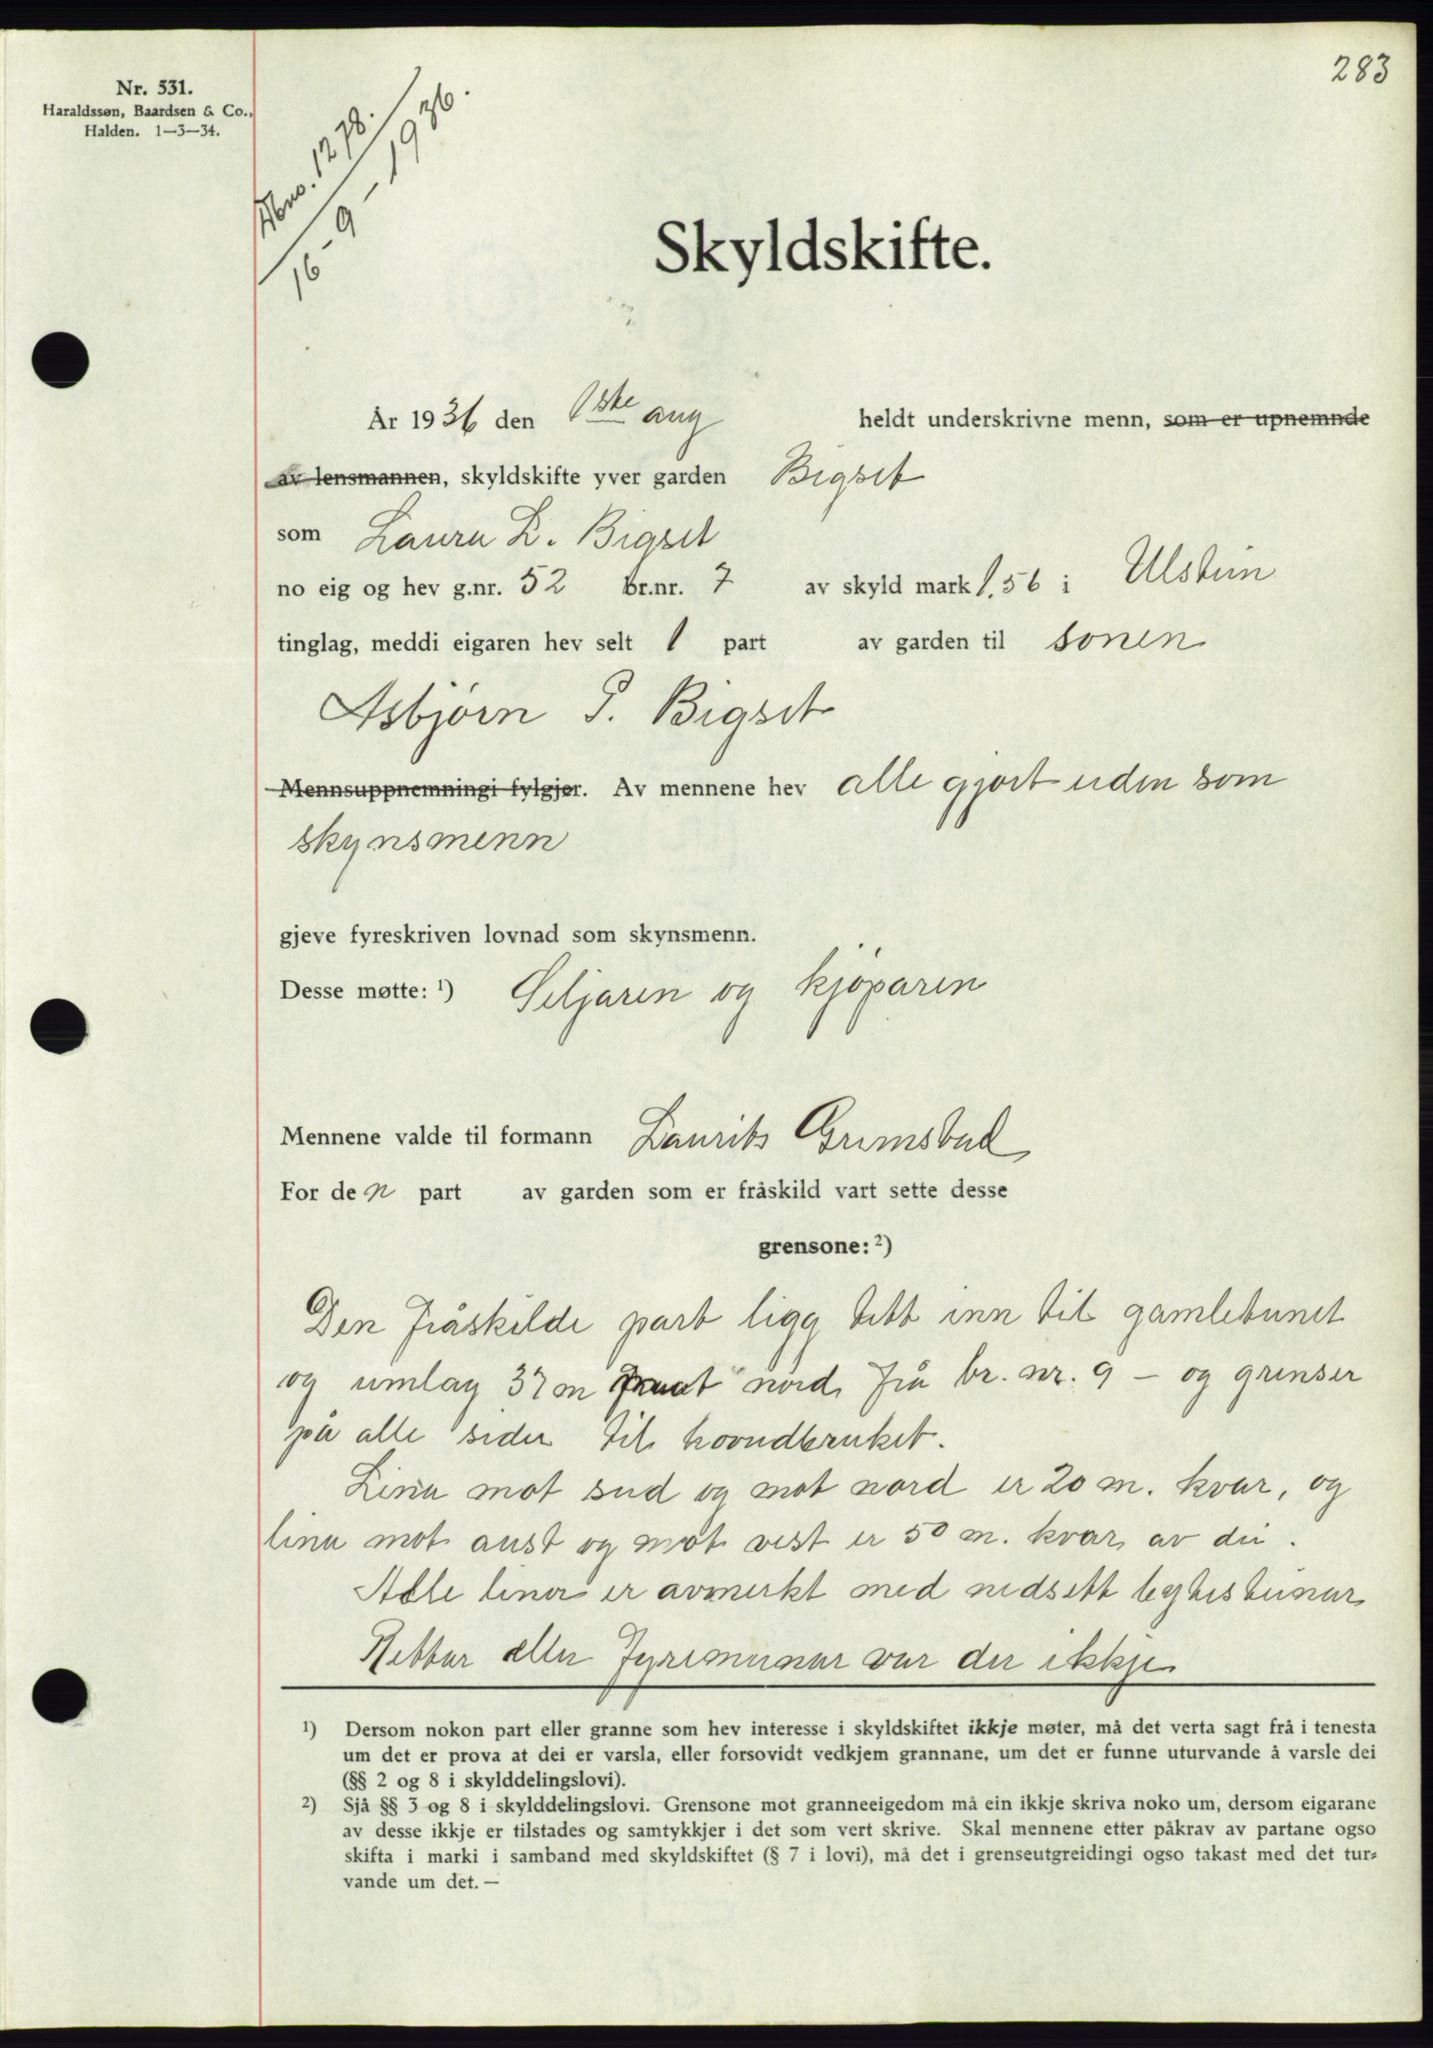 283
Nr. 531.
Haraldssøn, Baardsen & Co.,
Halden. 1—3—34.
Dbno. 1278.
16-9-1936.
Skyldskifte.
År 1936 den 1ste aug heldt underskrivne menn, som er upnemnde
av lensmannen, skyldskifte yver garden Bigset
som Laura L. Bigset
no eig og hev g.nr. 52 br.nr. 7 av skyld mark 1.56 i Ulstein
tinglag, meddi eigaren hev selt 1 part av garden til sonen
Asbjørn P. Bigset
Mennsuppnemningi fylgjer. Av mennene hev alle gjort eiden som
skynsmenn
gjeve fyreskriven lovnad som skynsmenn.
Desse møtte: 1) Seljaren og kjøparen
Mennene valde til formann Laurits Grimstad
For den part av garden som er fråskild vart sette desse
grensone: 2)
Den fråskilde part ligg tett inn til gamletunet
og umlag 37 m nord frå br. nr. 9 — og grenser
på alle sider til hovudbruket.
Lina mot sud og mot nord er 20 m. kvar, og
lina mot aust og mot vest er 50 m. kvar av dei.
Alle linor er avmerkt med nedsett
Rettar eller fyremunar var der ikkje
1) Dersom nokon part eller granne som hev interesse i skyldskiftet ikkje møter, må det verta sagt frå i tenesta
um det er prova at dei er varsla, eller forsovidt vedkjem grannane, um det er funne uturvande å varsle dei
(§§ 2 og 8 i skylddelingslovi).
2) Sjå §§ 3 og 8 i skylddelingslovi. Grensone mot granneeigedom må ein ikkje skriva noko um, dersom eigarane
av desse ikkje er tilstades og samtykkjer i det som vert skrive. Skal mennene etter påkrav av partane ogso
skifta i marki i samband med skyldskiftet (§ 7 i lovi), må det i grenseutgreidingi ogso takast med det tur-
vande um det. —